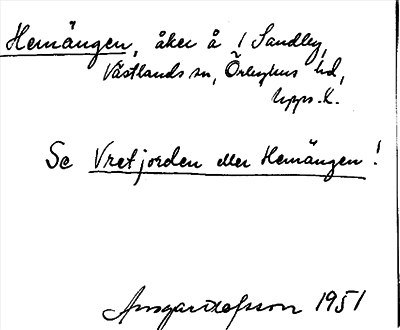 Hemängen, åker å 1 Sandby,
Västlands sn, Örbyhus hd,
Upps. l.
Se Vretjorden eller Hemängen!
Ansgar Olsson 1951